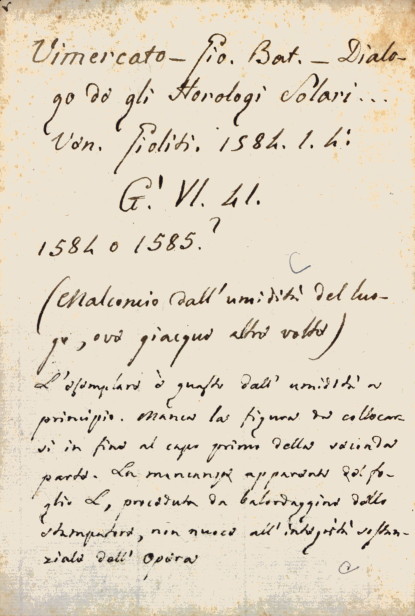 Vimercato – Gio. Bat. – Dialo-
go de gli Horologi Solari...
Ven. Gioliti. 1584. 1. 4:
G. VI. 41.
1584 o 1585.?
(Malconcio dall'umidità del luo-
go, ove giacque altre volte)
L'esemplare è guasto dall'umidità a
principio. Manca la figura da collocar-
si in fine al capo primo della seconda
parte. La mancanza apparente del fo-
glio L, proceduta da balordaggine dello
stampatore, non nuoce all'integrità sostan-
ziale dell'Opera